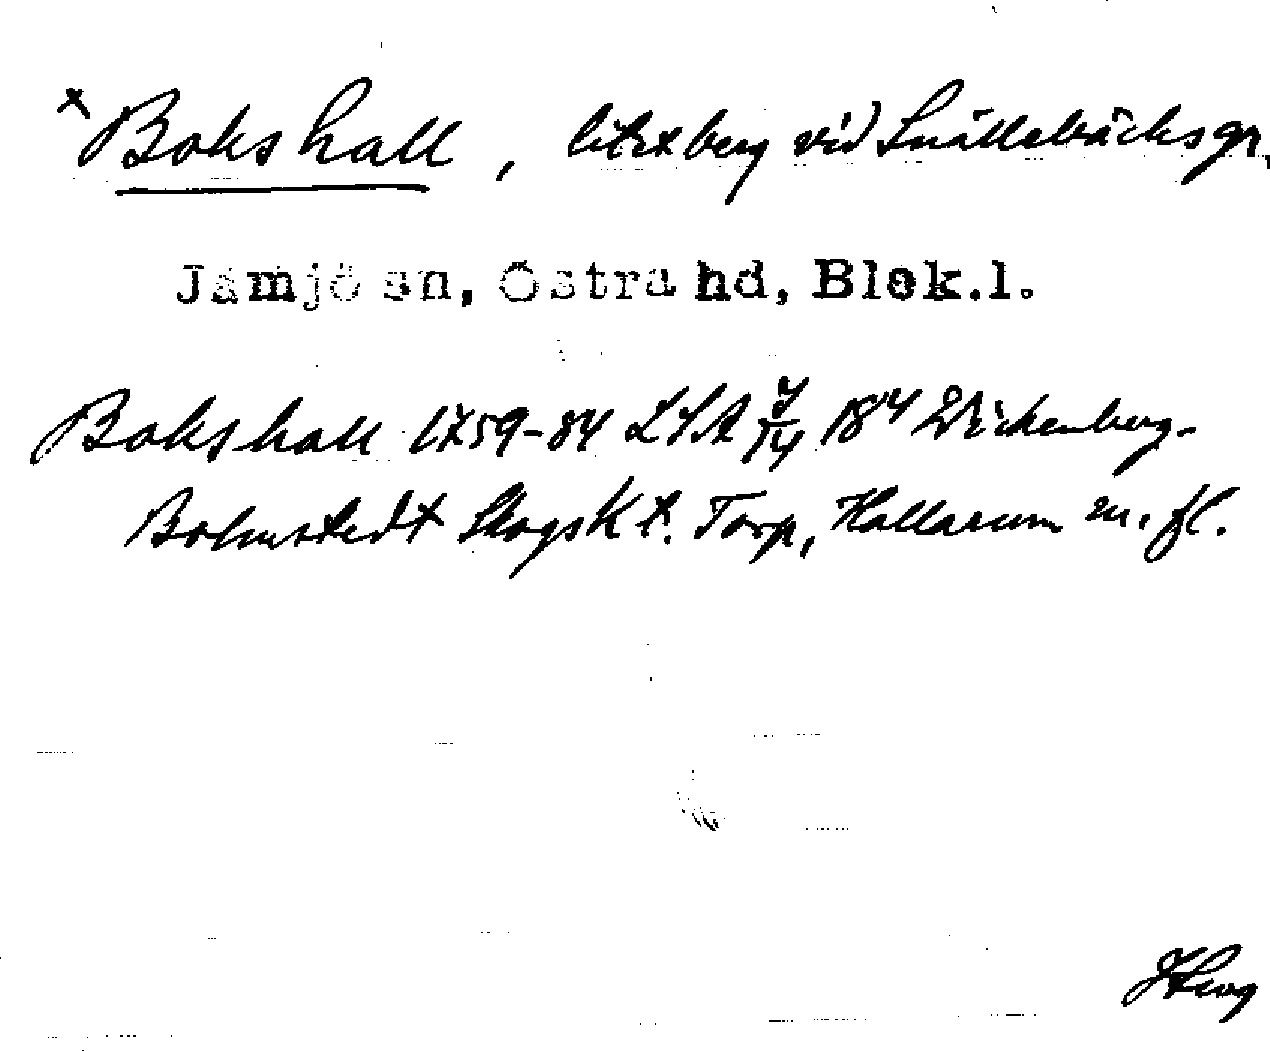 x Bokshall, litet berg vid Snällebäcksgr.
Jämjö sn, Östra hd, Blek.l.
Bokshall 1759-84 LSA 184 Wickenberg.
Bolmstedt Skogskt. Torp, Hallarum m. fl.